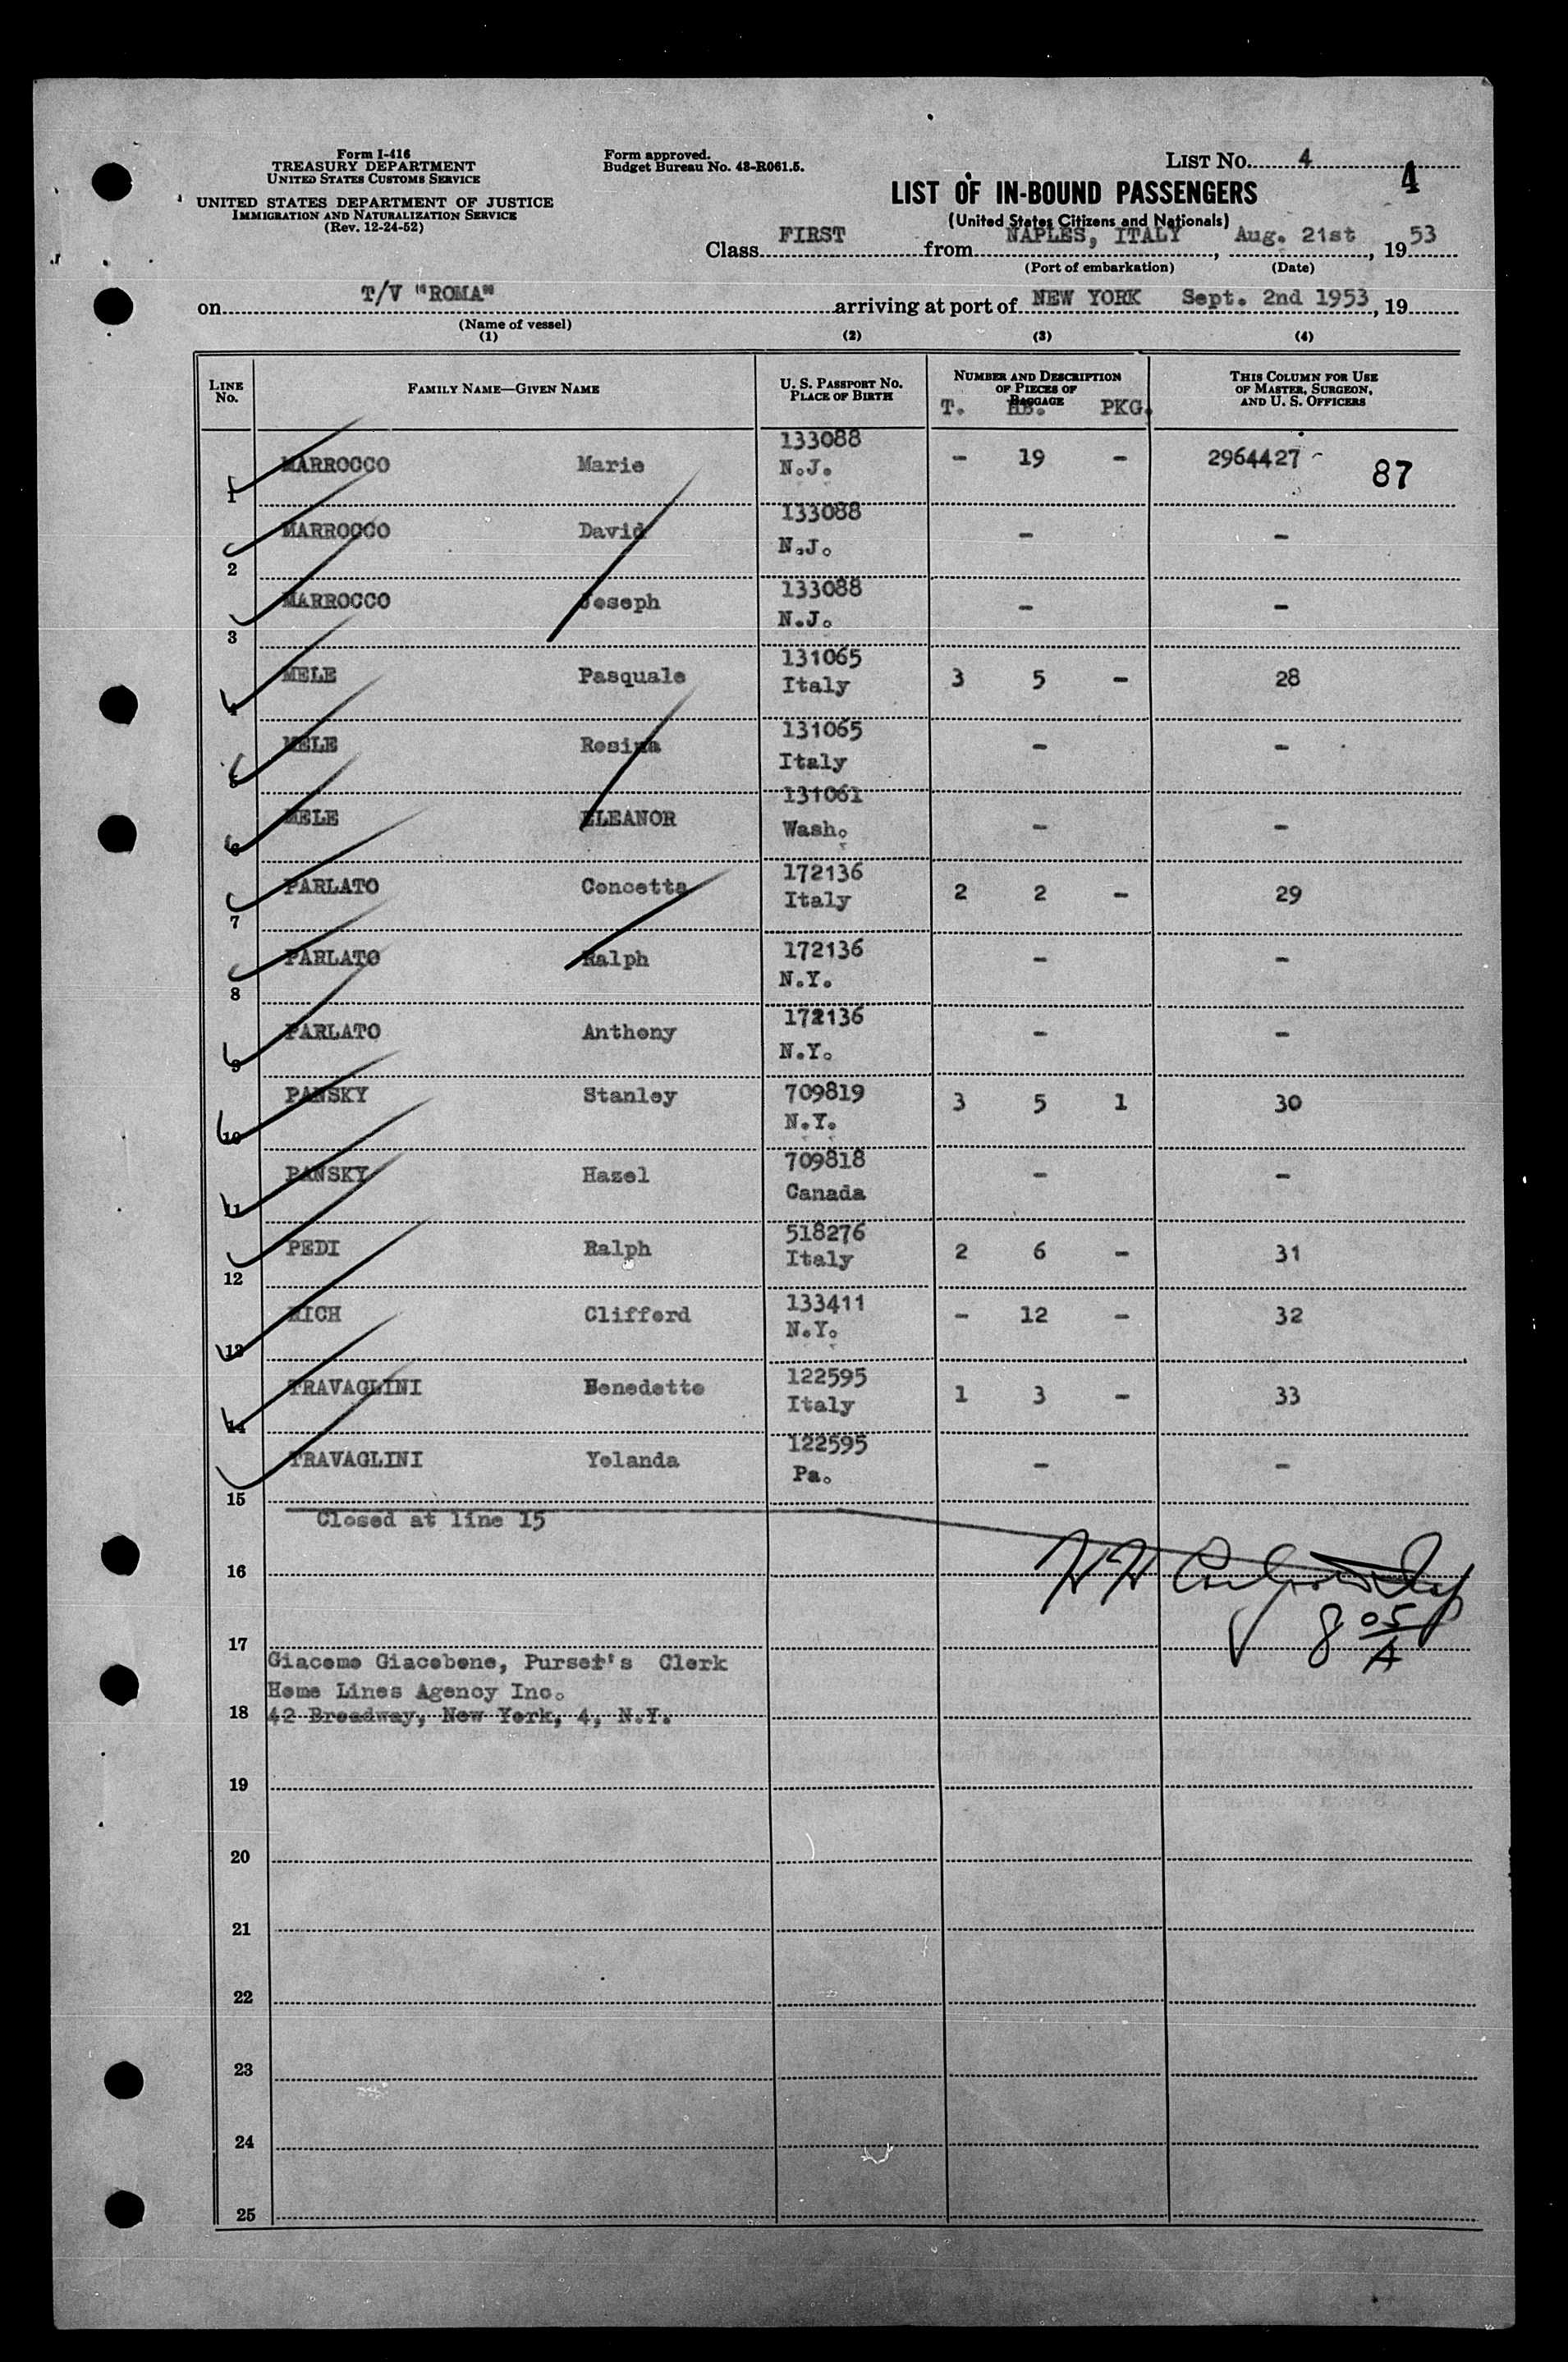 Form I-416
TREASURY DEPARTMENT
UNITED STATES CUSTOMS SERVICE
UNITED STATES DEPARTMENT OF JUSTICE
IMMIGRATION AND NATURALIZATION SERVICE
(Rev. 12-24-52)
Form approved.
Budget Bureau No. 43-R061.5.
LIST No. 4
4
LIST OF IN-BOUND PASSENGERS
(United States Citizens and Nationals)
Class FIRST from NAPLES, ITALY, Aug. 21st, 1953
(Port of embarkation) (Date)
on T/V "ROMA" arriving at port of NEW YORK Sept. 2nd 1953, 19
(Name of vessel)
(1) (2) (3) (4)
LINE No. FAMILY NAME—GIVEN NAME U. S. PASSPORT No. PLACE OF BIRTH NUMBER AND DESCRIPTION OF PIECES OF BAGGAGE THIS COLUMN FOR USE OF MASTER, SURGEON, AND U. S. OFFICERS
T. HB. PKG.
1 MARROCCO Marie 133088 N.J. - 19 - 2964427 - 87
2 MARROCCO David 133088 N.J. - -
3 MARROCCO Joseph 133088 N.J. - -
4 MELE Pasquale 131065 Italy 3 5 - 28
5 MELE Rosina 131065 Italy - -
6 MELE ELEANOR 131061 Wash. - -
7 PARLATO Concetta 172136 Italy 2 2 - 29
8 PARLATO Ralph 172136 N.Y. - -
9 PARLATO Anthony 172136 N.Y. - -
10 PANSKY Stanley 709819 N.Y. 3 5 1 30
11 PANSKY Hazel 709818 Canada - -
12 PEDI Ralph 518276 Italy 2 6 - 31
13 RICH Clifford 133411 N.Y. - 12 - 32
14 TRAVAGLINI Benedetto 122595 Italy 1 3 - 33
15 TRAVAGLINI Yolanda 122595 Pa. - -
Closed at line 15
16
8 05/A
17
Giacomo Giacobone, Purser's Clerk
Home Lines Agency Inc.
18 42 Broadway, New York, 4, N.Y.
19
20
21
22
23
24
25